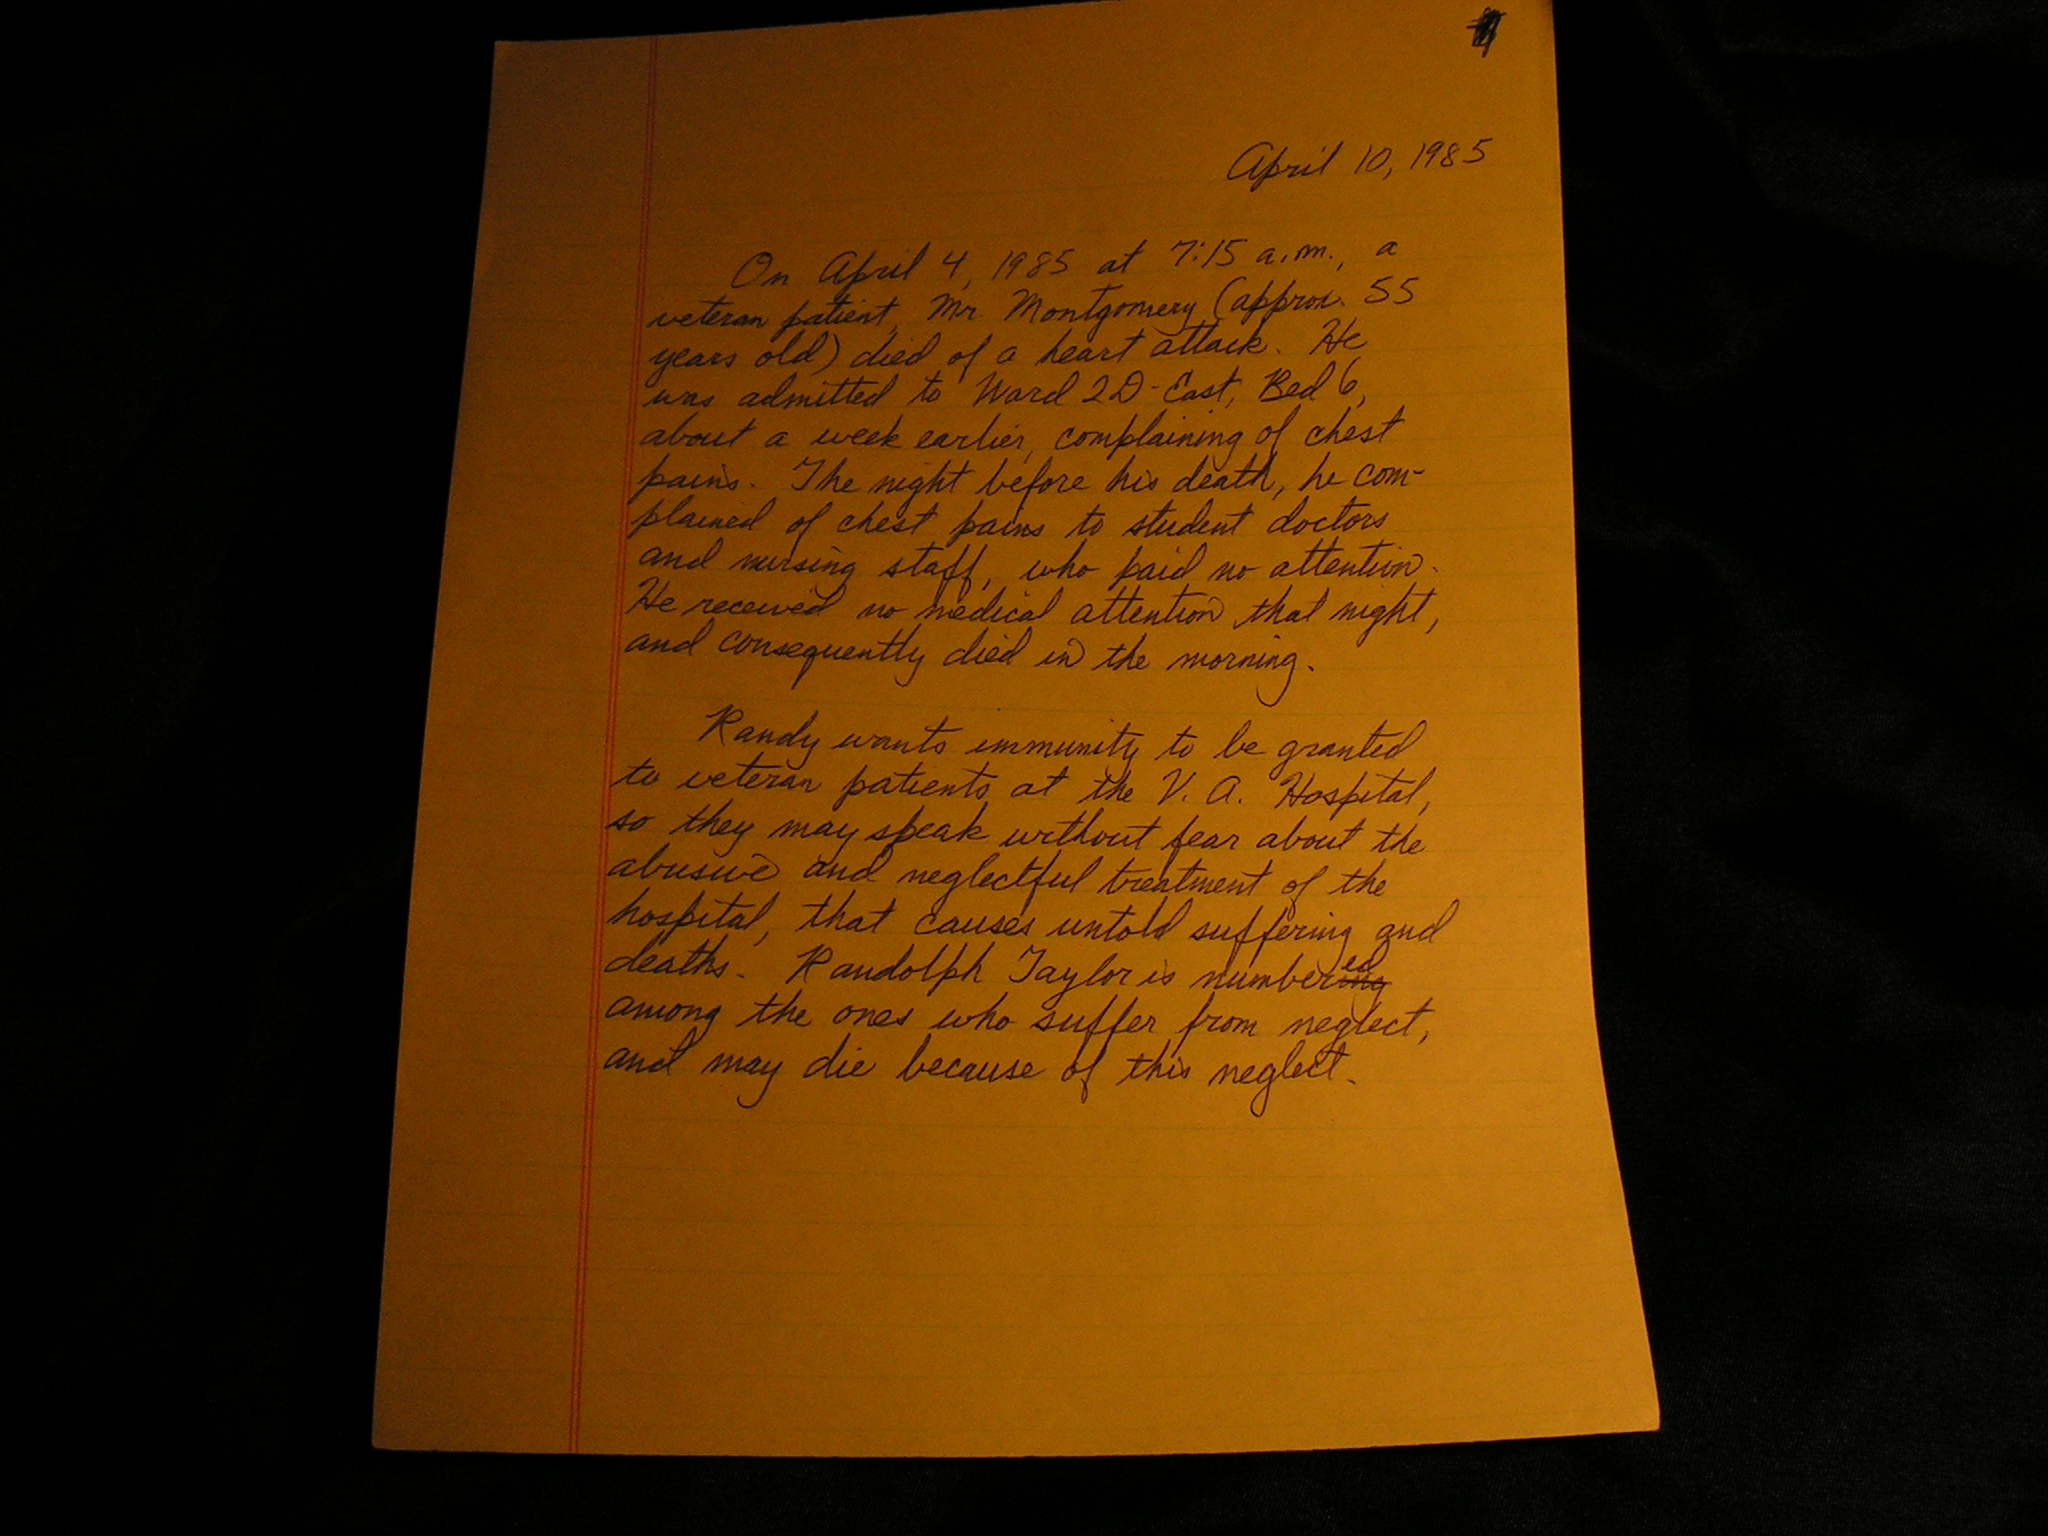 April 10, 1985
On April 4, 1985 at 7:15 a.m., a
veteran patient, Mr. Montgomery (approx. 55
years old) died of a heart attack. He
was admitted to Ward 2D-East, Bed 6,
about a week earlier, complaining of chest
pains. The night before his death, he com-
plained of chest pains to student doctors
and nursing staff, who paid no attention.
He received no medical attention that night,
and consequently died in the morning.
Randy wants immunity to be granted
to veteran patients at the V. A. Hospital,
so they may speak without fear about the
abusive and neglectful treatment of the
hospital, that causes untold suffering and
deaths. Randolph Taylor is numbered
among the ones who suffer from neglect,
and may die because of this neglect.